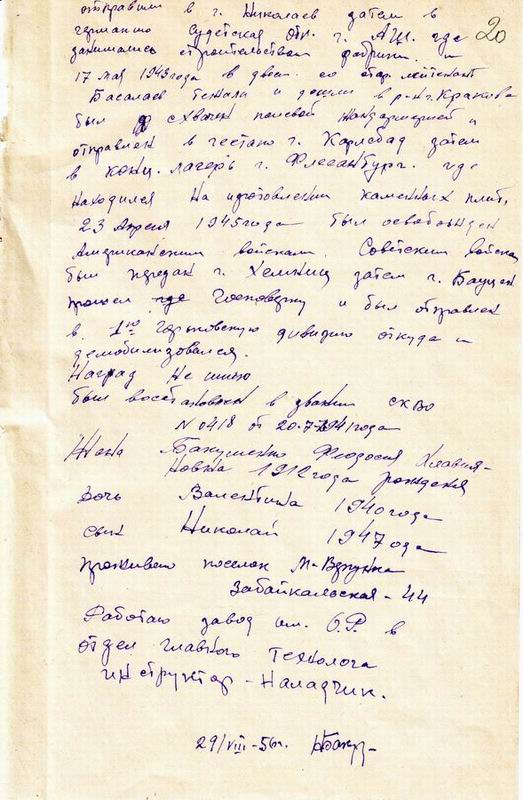 отправили в г. Николаев затем в
германию Судетская обл. г. АШ. где
20
занимались строительством фабрики. и
17 мая 1943 года в двоем со стар. лейтенант
Басалаев бежали и дошли в р-н г. Кракова
был схвачен полевой жандармерией и
отправлен в гестапо г. Карлсбад затем
в конц. лагерь г. Флесанбург. где
находился на изготовлении каменных плит,
23 Апреля 1945 года был освобожден
Американским войскам. Советским войскам
был передан г. Хемниц затем г. Бауцен
прошел где Госповерку и был отправлен
в 1ую Горьковскую дивизию откуда и
демобилизовался.
Наград Не имею
был восстановлен в звании СКВО
N 0418 от 20-7-1941 года
Жена Бакуменко Феодосия
новна 1912 года рождения
дочь Валентина 1940 года
сын Николай 1947 ода
проживаю поселок М-Вэрунка
Забайкальская - 44
Работаю завод им. О.Р. в
отдел главного технолога
инструктор - Наладчик.
29/VIII-56 г.